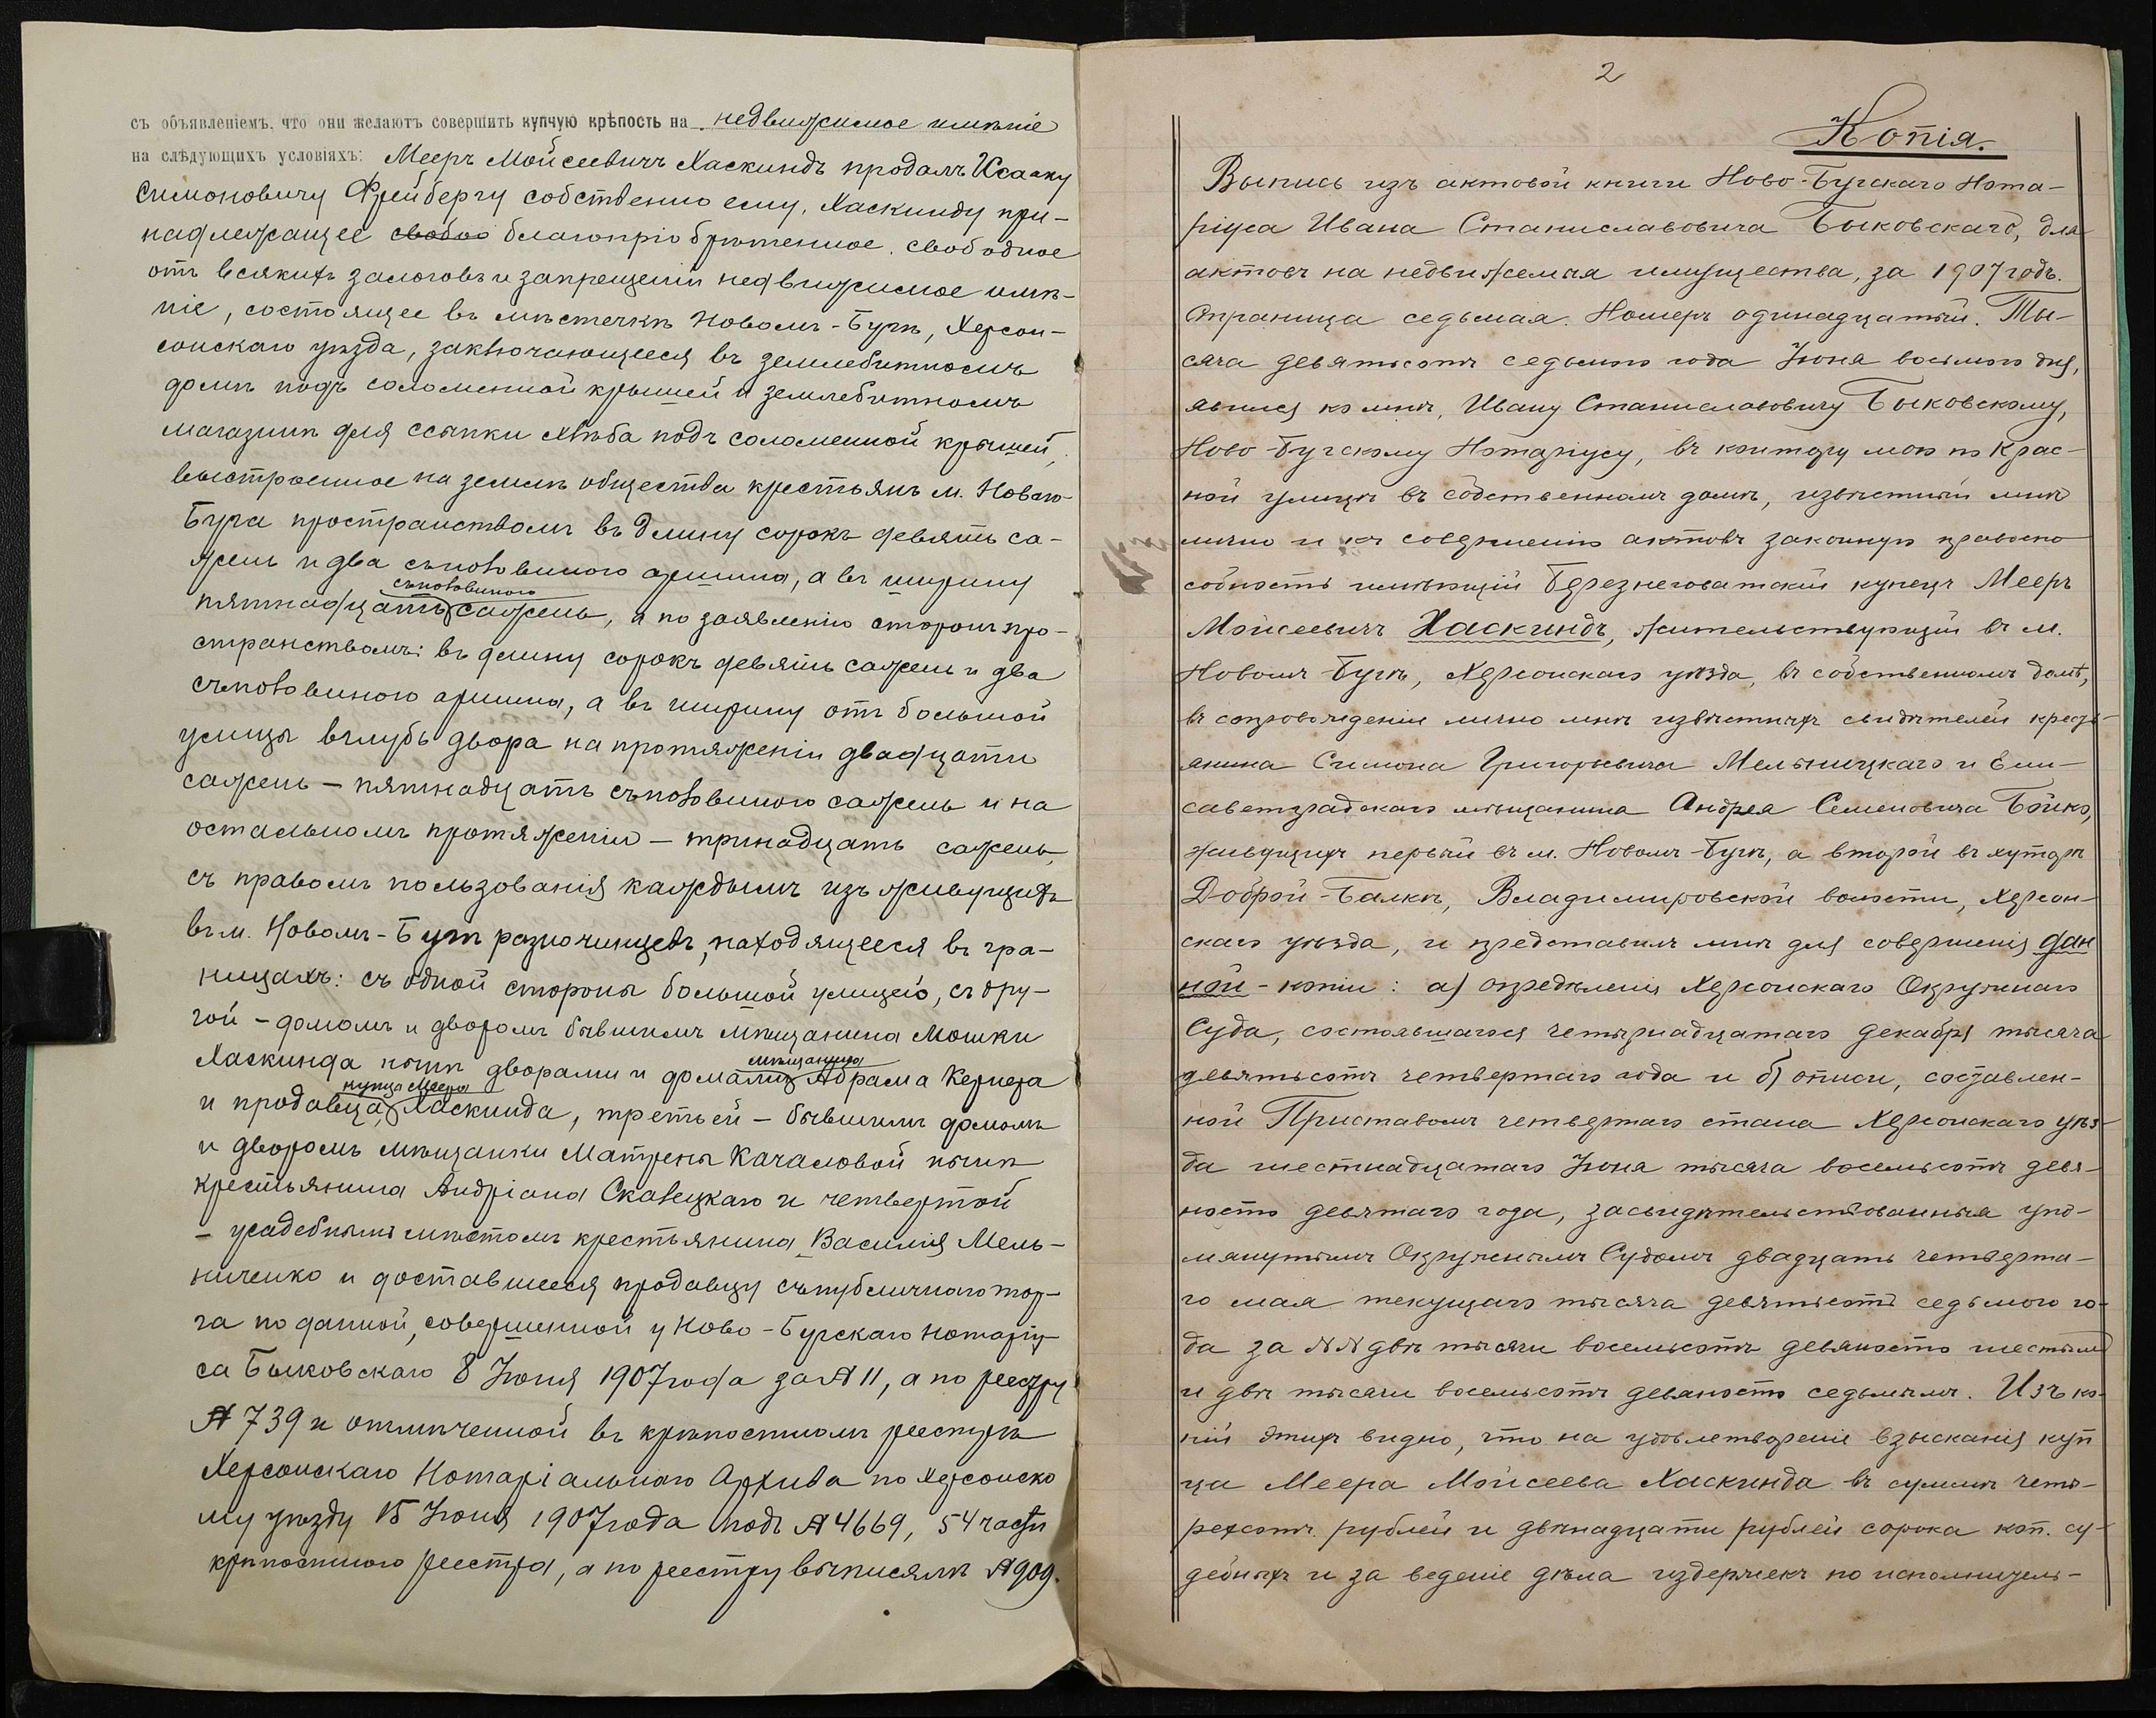 съ объявленіемъ, что они желаютъ совершить купчую крѣпость на недвижимое имѣніе
на слѣдующихъ условіяхъ: Мееръ Мойсеевичъ Хаскиндъ продалъ Исааку
Симоновичу Фрейбергу собственно ему, Хаскинду при-
надлежащее свобод благопріобрѣтенное свободное
отъ всякихъ залоговъ и запрещеній недвижимое имѣ-
ніе, состоящее въ мѣстечкѣ Новомъ-Бугѣ, Херсон-
сонскаго уѣзда, заключающееся въ землебитномъ
домѣ подъ соломенной крышей и землебитномъ
магазинѣ для ссыпки хлѣба подъ соломенной крышей,
выстроенное на землѣ общества крестьянъ м. Новаго-
Буга пространствомъ въ длину сорокъ девять са-
жень и два съ половиного аршина, а въ ширину
съ половиного
пятнадцать сажень, а по заявленію сторонъ про-
странствомъ: въ длину сорокъ девять сажень и два
съ половиного аршина, а въ ширину отъ большой
улицы вглубь двора на протяженіи двадцати
сажень - пятнадцать съ половиного сажень и на
остальномъ протяженіи - тринадцать сажень,
съ правомъ пользованія каждымъ изъ живущихъ
въ м. Новомъ-Бугѣ разночинцевъ, находящееся въ гра-
ницахъ: съ одной стороны большой улицей, съ дру-
гой - домомъ и дворомъ бывшимъ мѣщанина Мошки
мѣщанина
Хаскинда нынѣ дворами и домами Абрама Кернера
купца Меера
и продавца, Хаскинда, третьей - бывшимъ домомъ
и дворомъ мѣщанки Матрены Качаловой нынѣ
крестьянина Андріана Скавецкаго и четвертой
- усадебнымъ мѣстомъ крестьянина Василія Мель-
ниченко и доставшееся продавцу съ публичнаго тор-
га по данной, совершенной у Ново-Бугскаго Нотаріу-
са Быковскаго 8 Іюня 1907 года за № 11, а по реестру
№ 739 и отмѣченной въ крѣпостномъ реестрѣ
Херсонскаго Нотаріальнаго Архива по Херсонско
му уѣзду 15 Іюня 1907 года подъ № 4669, 54 части
крѣпостного реестра, а по реестру выписямъ № 909.
2
Копія.
Выпись изъ актовой книги Ново-Бугскаго Нота-
ріуса Ивана Станиславовича Быковскаго, для
актовъ на недвижемыя имущества, за 1907 годъ.
Страница седьмая. Номеръ одинадцатый. Ты-
сяча девятьсотъ седьмого года Іюня восьмого дня,
явился ко мнѣ, Ивану Станиславовичу Быковскому,
Ново-Бугскому Нотаріусу, въ контору мою по Крас-
ной улицѣ въ собственномъ домѣ, извѣстный мнѣ
лично и къ совершенію актовъ законную правоспо
собность имѣющій Березнеговатскій купецъ Мееръ
Мойсеевичъ Хаскиндъ, жительствующій въ м.
Новомъ-Бугѣ, Херсонскаго уѣзда, въ собственномъ домѣ,
въ сопровожденіи лично мнѣ извѣстныхъ свидѣтелей кресть-
янина Симона Григорьевича Мельницкаго и Ели-
саветградскаго мѣщанина Андрея Семеновича Бойко,
живущихъ первый въ м. Новомъ-Бугѣ, а второй въ хуторѣ
Доброй-Балкѣ, Владимировской волости, Херсон-
скаго уѣзда, и представилъ мнѣ для совершенія дан
ной - копіи: а) опредѣленія Херсонскаго Окружнаго
Суда, состоявшагося четырнадцатаго декабря тысяча
девятьсотъ четвертаго года и б) описи, составлен-
ной Приставомъ четвертаго стана Херсонскаго уѣз-
да шестнадцатаго Іюня тысяча восемьсотъ девя-
носто девятаго года, засвидѣтельствованныя упо-
мянутымъ Окружнымъ Судомъ двадцать четверта-
го мая текущаго тысяча девятьсотъ седьмого го-
да за №№ двѣ тысячи восемьсотъ девяносто шестымъ
и двѣ тысячи восемьсотъ девяносто седьмымъ. Изъ ко-
пій этихъ видно, что на удовлетвореніе взысканія куп
ца Меера Мойсеева Хаскинда въ суммѣ четы-
рехсотъ рублей и двѣнадцати рублей сорока коп. су-
дебныхъ и за веденіе дѣла издержекъ по исполнитель-